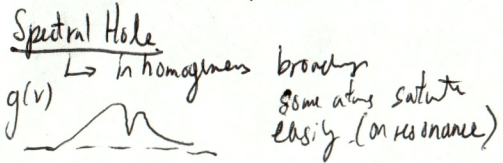 Spectral Hole
↳ Inhomogeneous broadening
some atoms saturate
g(ν) easily (on resonance)